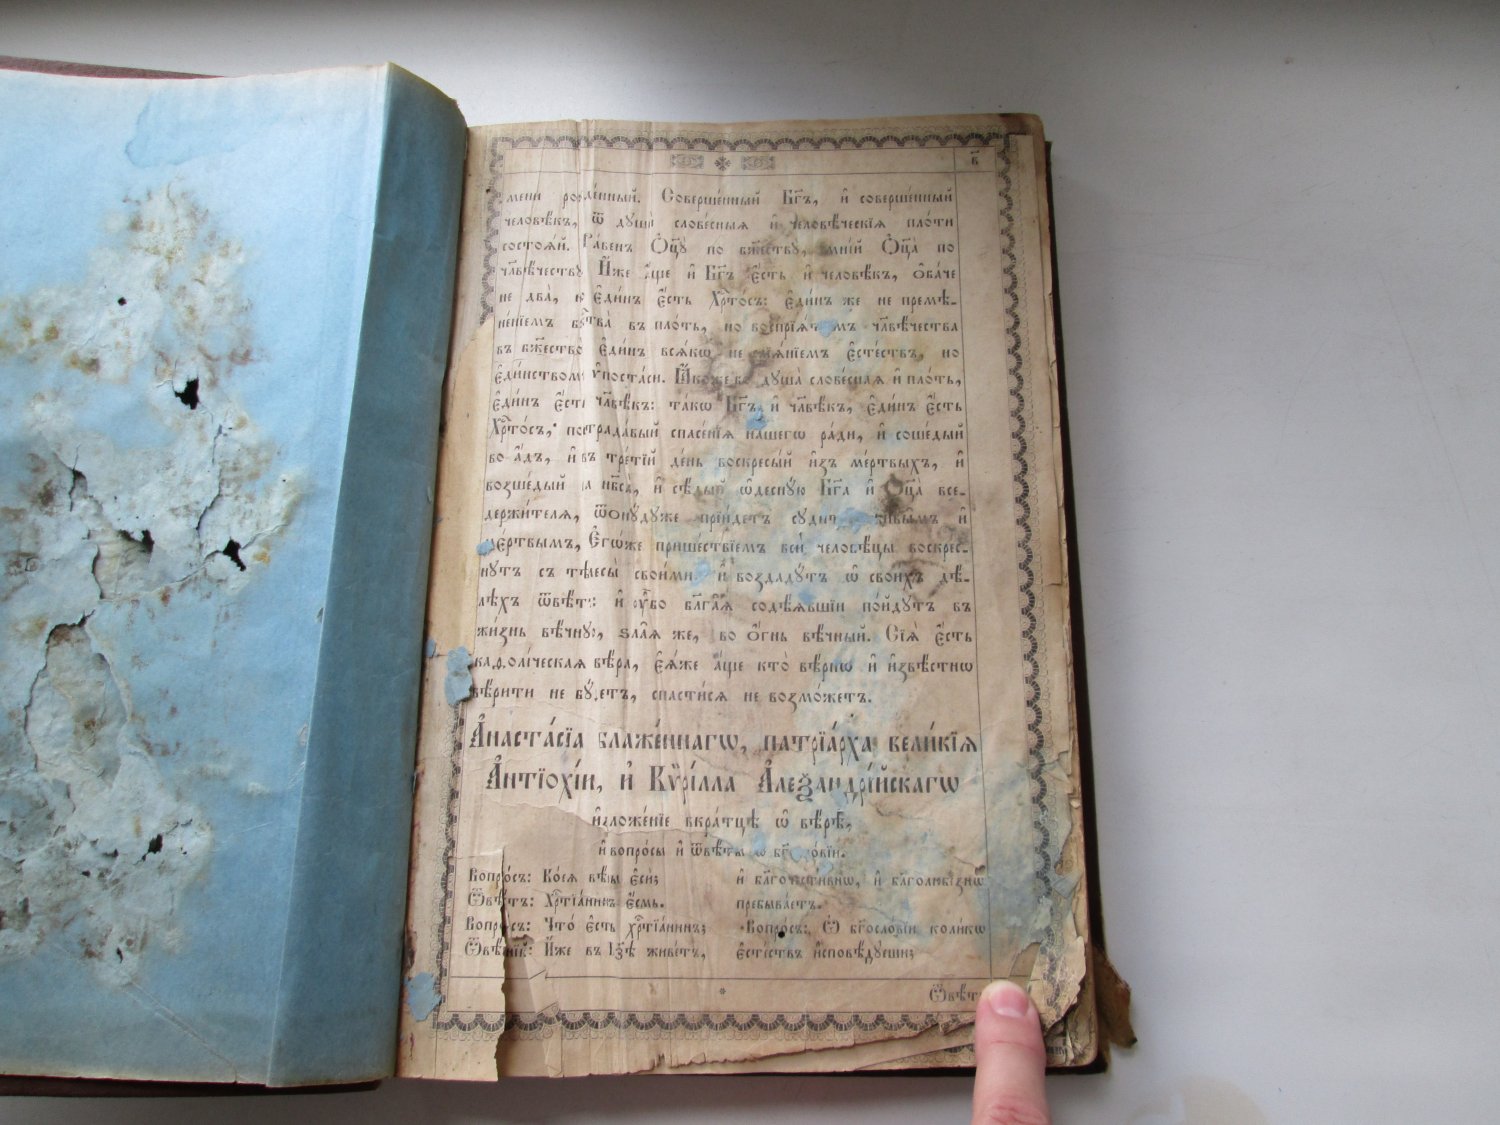 в҃
мени рожде́нный. Соверше́нный Бг҃ъ, и҆ соверше́нный
человѣ́къ, ѿ душѝ слове́сныя и҆ человѣ́ческїѧ пло́ти
состоѧ́й. Ра́венъ Ѻ҆ц҃у̀ по бж҃еству̀, мні́й Ѻ҆ц҃а̀ по
чл҃вѣ́честву И҆́же а҆́ще и҆ Бг҃ъ є҆́сть и҆ человѣ́къ, ѻ҆ба́че
не два̀, но є҆ди́нъ є҆́сть Хрⷭ҇то́съ: є҆ди́нъ же не премѣ-
не́нїемъ бж҃ества̀ въ пло́ть, но воспрїѧ́тїемъ чл҃вѣ́чества
въ бж҃ество̀ є҆ди́нъ всѧ́кѡ не смѧте́нїемъ є҆сте́ствъ, но
є҆ди́нствомъ ѵ҆поста́си. Ꙗ҆́коже бо душа̀ слове́сная и҆ пло́ть,
є҆ди́нъ є҆́сть чл҃вѣ́къ: та́кѡ Бг҃ъ и҆ чл҃вѣ́къ, є҆ди́нъ є҆́сть
Хрⷭ҇то́съ, пострада́вый спасе́нїѧ на́шегѡ ра́ди, и҆ соше́дый
во а҆́дъ, и҆ въ тре́тїй де́нь воскресы́й и҆зъ ме́ртвыхъ, и҆
возше́дый на нб҃са̀, и҆ сѣдѧ́й ѡ҆десну́ю Бг҃а и҆ Ѻ҆ц҃а̀ все-
держи́телѧ, ѿону́дуже прїи́детъ суди́ти живы́мъ и҆
ме́ртвымъ, Є҆гѡ́же прише́ствїемъ всѝ человѣ́цы воскре́с-
нутъ съ тѣлесы̀ свои́ми. и҆ воздаду́тъ ѡ҆ свои́хъ дѣ-
лѣ́хъ ѿвѣ́тъ: и҆ ᲂу҆́бо бл҃га̑ѧ содѣ́ѧвшїи по́йдутъ въ
жи́знь вѣ́чную, ѕла̑ѧ же, во ѻ҆́гнь вѣ́чный. Сїѧ̀ є҆́сть
каѳоли́ческая вѣ́ра, є҆ѧ́же а҆́ще кто̀ вѣ́рнѡ и҆ и҆звѣ́стнѡ
вѣ́рити не бу́детъ, спасти́сѧ не возмо́жетъ.
А҆наста́сїа блаже́ннагѡ, патрїа́рха вели́кїѧ
А҆нтїохі́и, и҆ Кѷрі́лла А҆леѯандрі́йскагѡ
и҆зложе́нїе вкра́тцѣ ѡ҆ вѣ́рѣ,
и҆ вопро́сы и҆ ѿвѣ́ты ѡ҆ бг҃осло́вїи.
Вопро́съ: Ко́єѧ вѣ́ры є҆сѝ;
Ѿвѣ́тъ: Хрⷭ҇тїа́нинъ є҆́смь.
Вопро́съ: Что́ є҆сть хрⷭ҇тїа́нинъ;
Ѿвѣ́тъ: И҆́же въ Хрⷭ҇тѣ̀ живе́тъ,
и҆ бл҃гоче́стивнѡ, и҆ бл҃голюбі́знѡ
пребыва́етъ.
Вопро́съ: Ѽ бг҃осло́вїи коли́кѡ
є҆сте́ствъ и҆сповѣ́дуеши;
Ѿвѣ́тъ